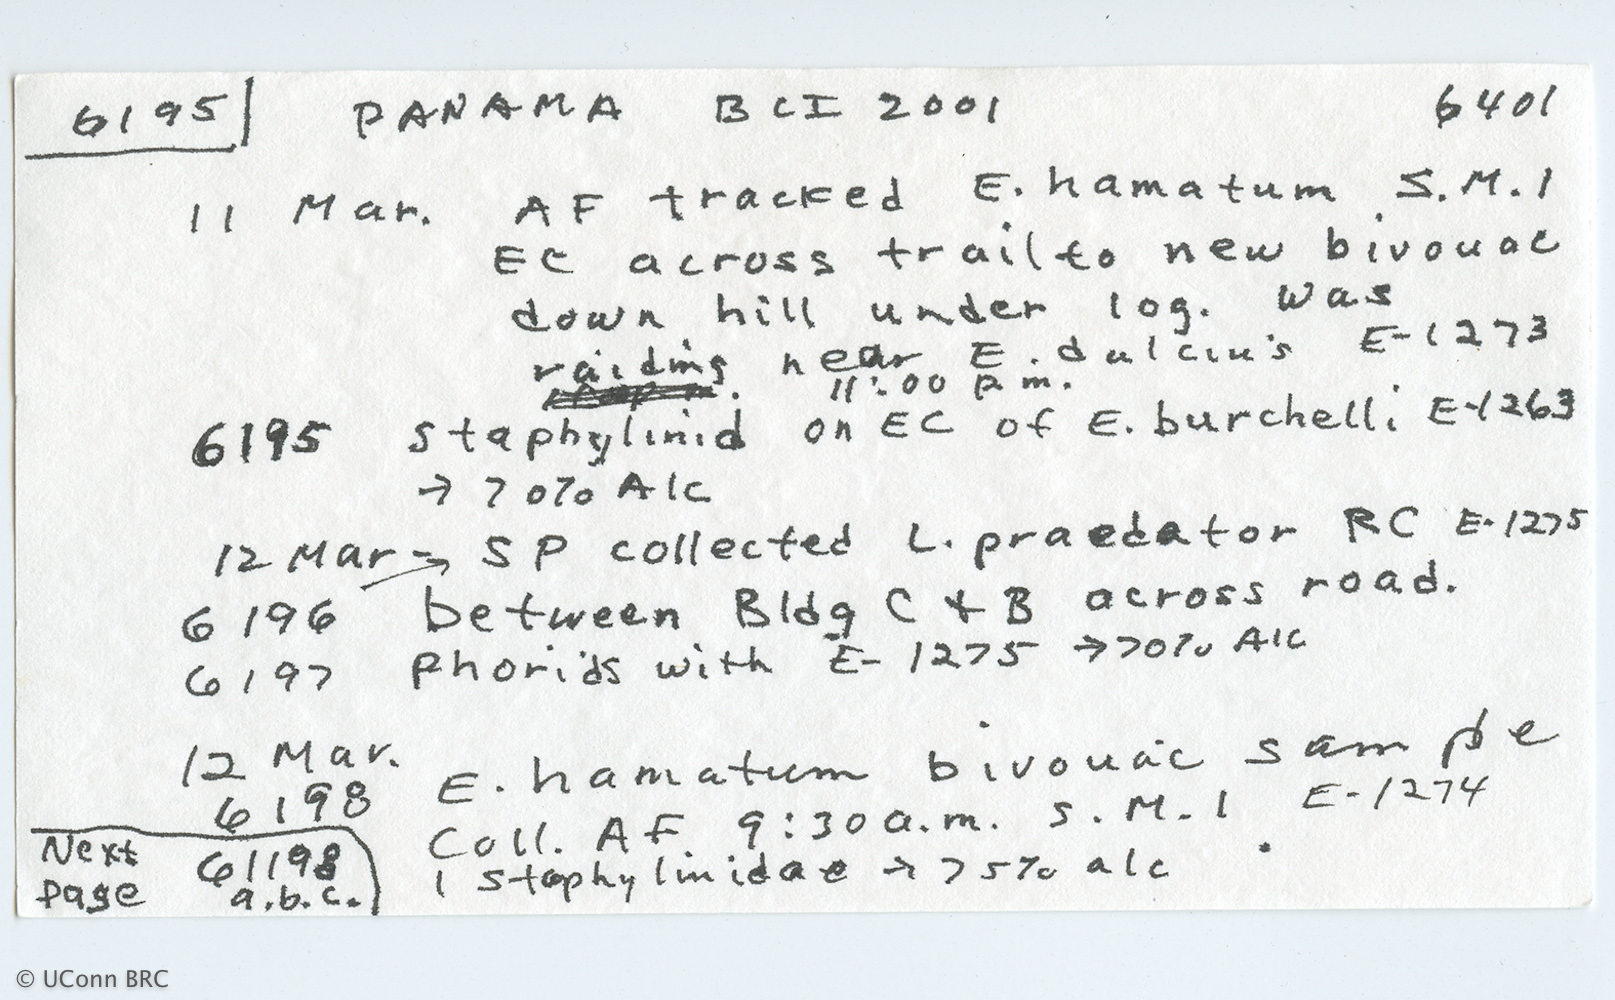 6195 PANAMA BCI 2001 6401
11 Mar. AF tracked E. hamatum S.M.1
EC across trail to new bivouac
down hill under log. Was
raiding near E. dulcius E-1273
11:00 p.m.
6195 Staphylinid on EC of E. burchelli E-1263
→ 70% Alc
12 Mar → SP collected L. praedator RC E-1275
6196 between Bldg C & B across road.
6197 Phorids with E-1275 → 70% Alc
12 Mar. E. hamatum bivouac sample
6198 Coll. AF 9:30 a.m. S.M.1 E-1274
Next 61198 1 Staphylinidae → 75% alc
page a.b.c.
© UConn BRC